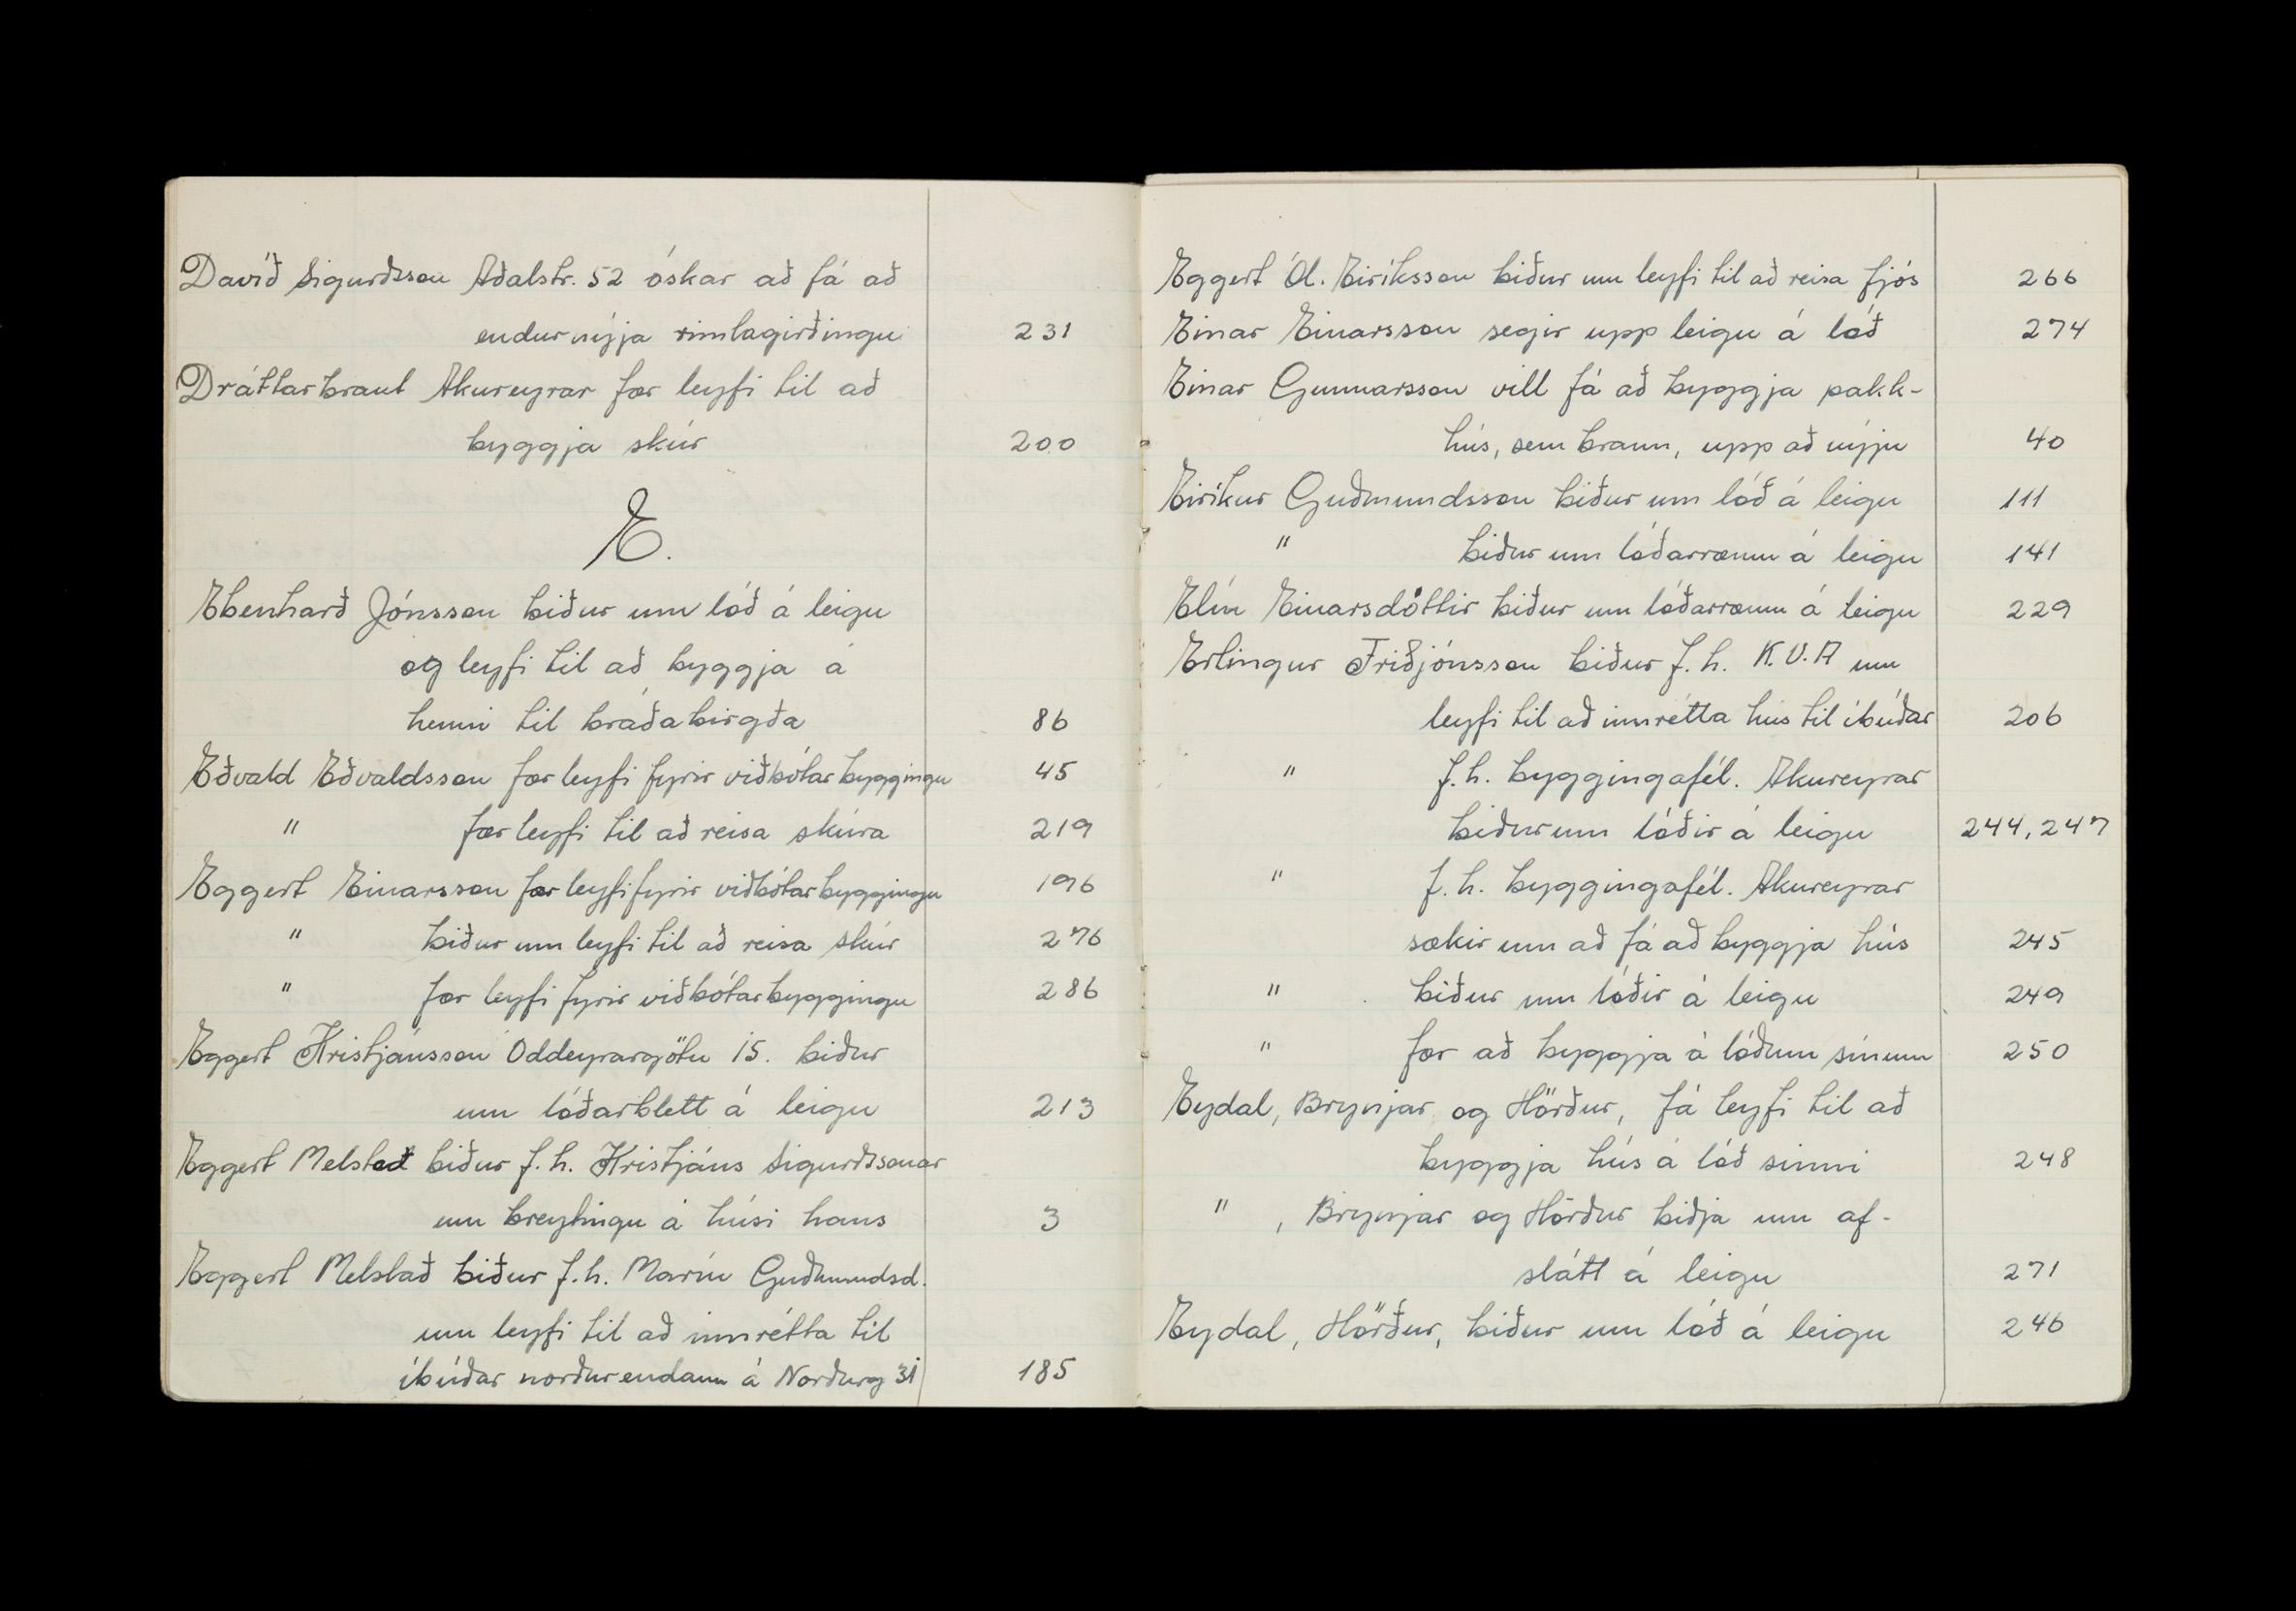 Davíð Sigurðsson Aðalstr. 52 óskar að fá að
endurnýja rimlagirðingu 231
Dráttarbraut Akureyrar fær leyfi til að
byggja skúr 200
E.
Ebenharð Jónsson biður um lóð á leigu
og leyfi til að byggja á
henni til bráðabirgða 86
Eðvald Eðvaldsson fær leyfi fyrir viðbótarbyggingu 45
" fær leyfi til að reisa skúra 219
Eggert Einarsson fær leyfi fyrir viðbótarbyggingu 196
" biður um leyfi til að reisa skúr 276
" fær leyfi fyrir viðbótarbyggingu 286
Eggert Kristjánsson Oddeyrargötu 15. biður
um lóðarblett á leigu 213
Eggert Melstað biður f.h. Kristjáns Sigurðssonar
um breytingu á húsi hans 3
Eggert Melstað biður f.h. Maríu Guðmundsd.
um leyfi til að innrétta til
íbúðar norðurendann á Norðurg 31 185
Eggert Ól. Eiríksson biður um leyfi til að reisa fjós 266
Einar Einarsson segir upp leigu á lóð 274
Einar Gunnarsson vill fá að byggja pakk-
hús, sem brann, upp að nýju 40
Eiríkur Guðmundsson biður um lóð á leigu 111
" biður um lóðarræmu á leigu 141
Elín Einarsdóttir biður um lóðarræmu á leigu 229
Erlingur Friðjónsson biður f.h. K.V.A um
leyfi til að innrétta hús til íbúðar 206
" f.h. byggingafél. Akureyrar
biður um lóðir á leigu 244, 247
" f.h. byggingafél. Akureyrar
sækir um að fá að byggja hús 245
" biður um lóðir á leigu 249
" fær að byggja á lóðum sínum 250
Eydal, Brynjar og Hörður, fá leyfi til að
byggja hús á lóð sinni 248
" , Brynjar og Hörður biðja um af-
slátt á leigu 271
Eydal, Hörður, biður um lóð á leigu 246